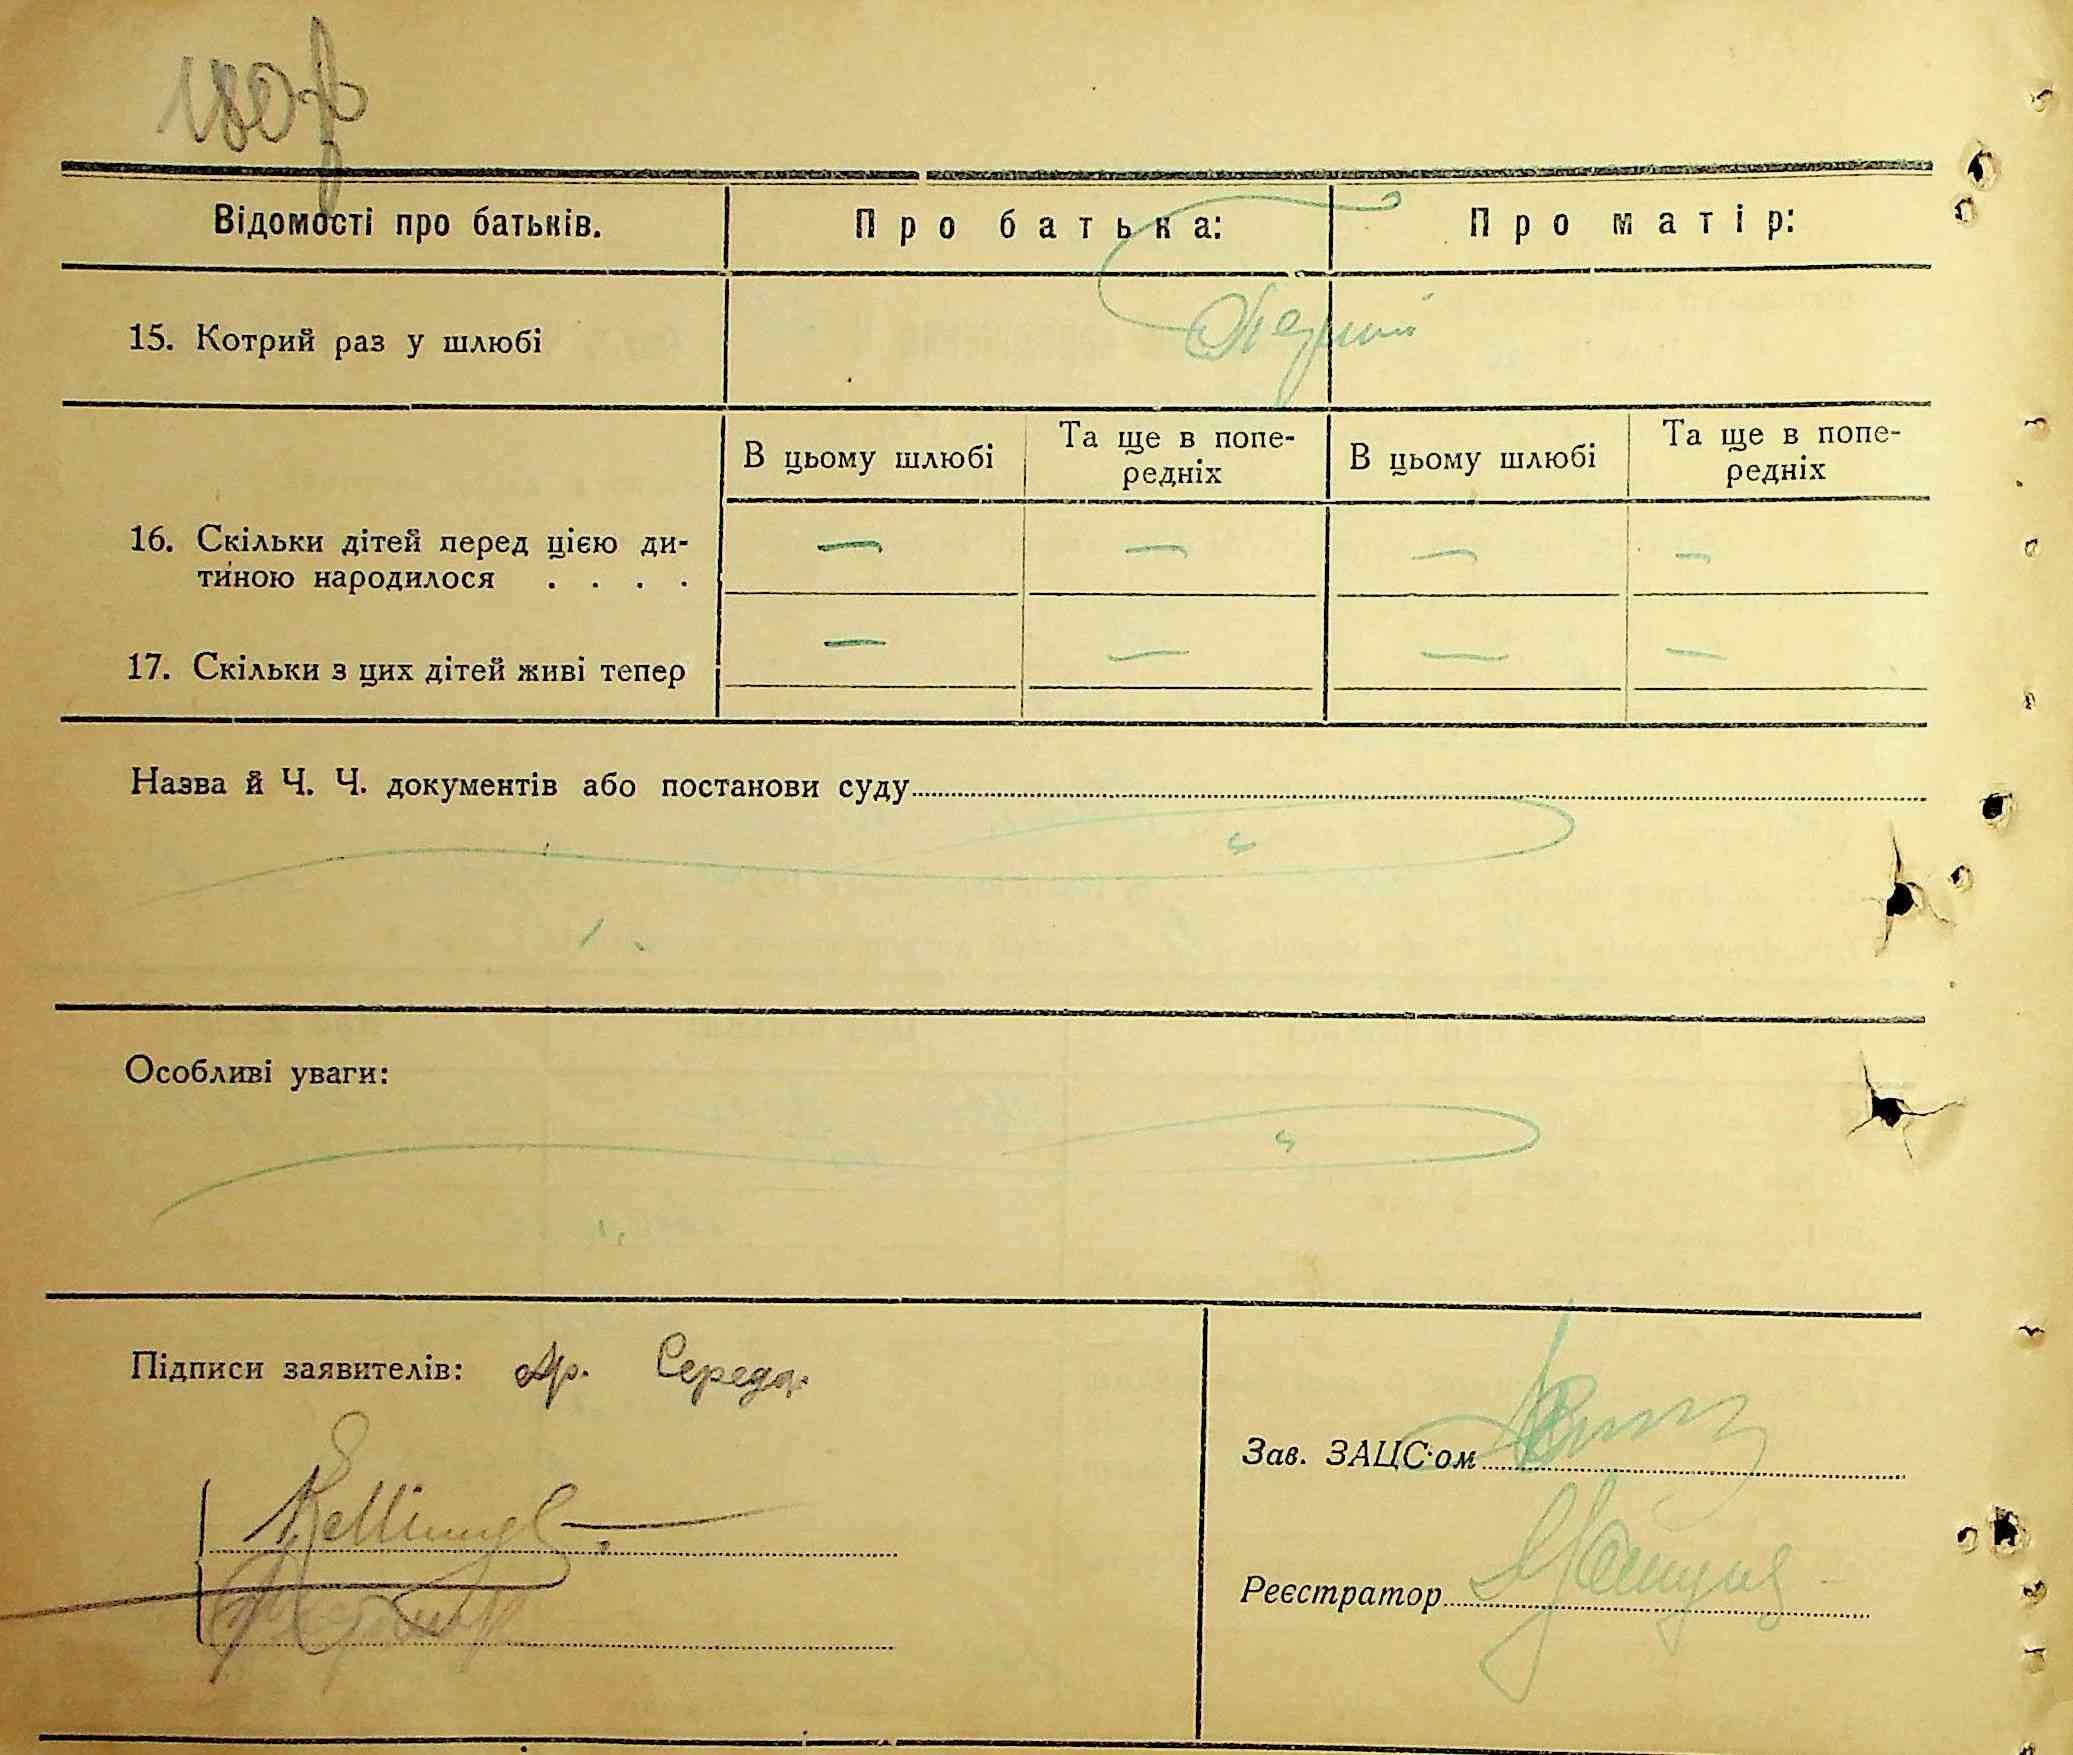 Відомості про батьків. Про батька: Про матір:
15. Котрий раз у шлюбі
В цьому шлюбі Та ще в попе-
редніх В цьому шлюбі Та ще в попе-
редніх
16. Скільки дітей перед цією ди- — — — —
тиною народилося . . . .
17. Скільки з цих дітей живі тепер — — — —
Назва й Ч. Ч. документів або постанови суду
Особливі уваги:
Підписи заявителів: Середа
Зав. ЗАЦС·ом
Реєстратор